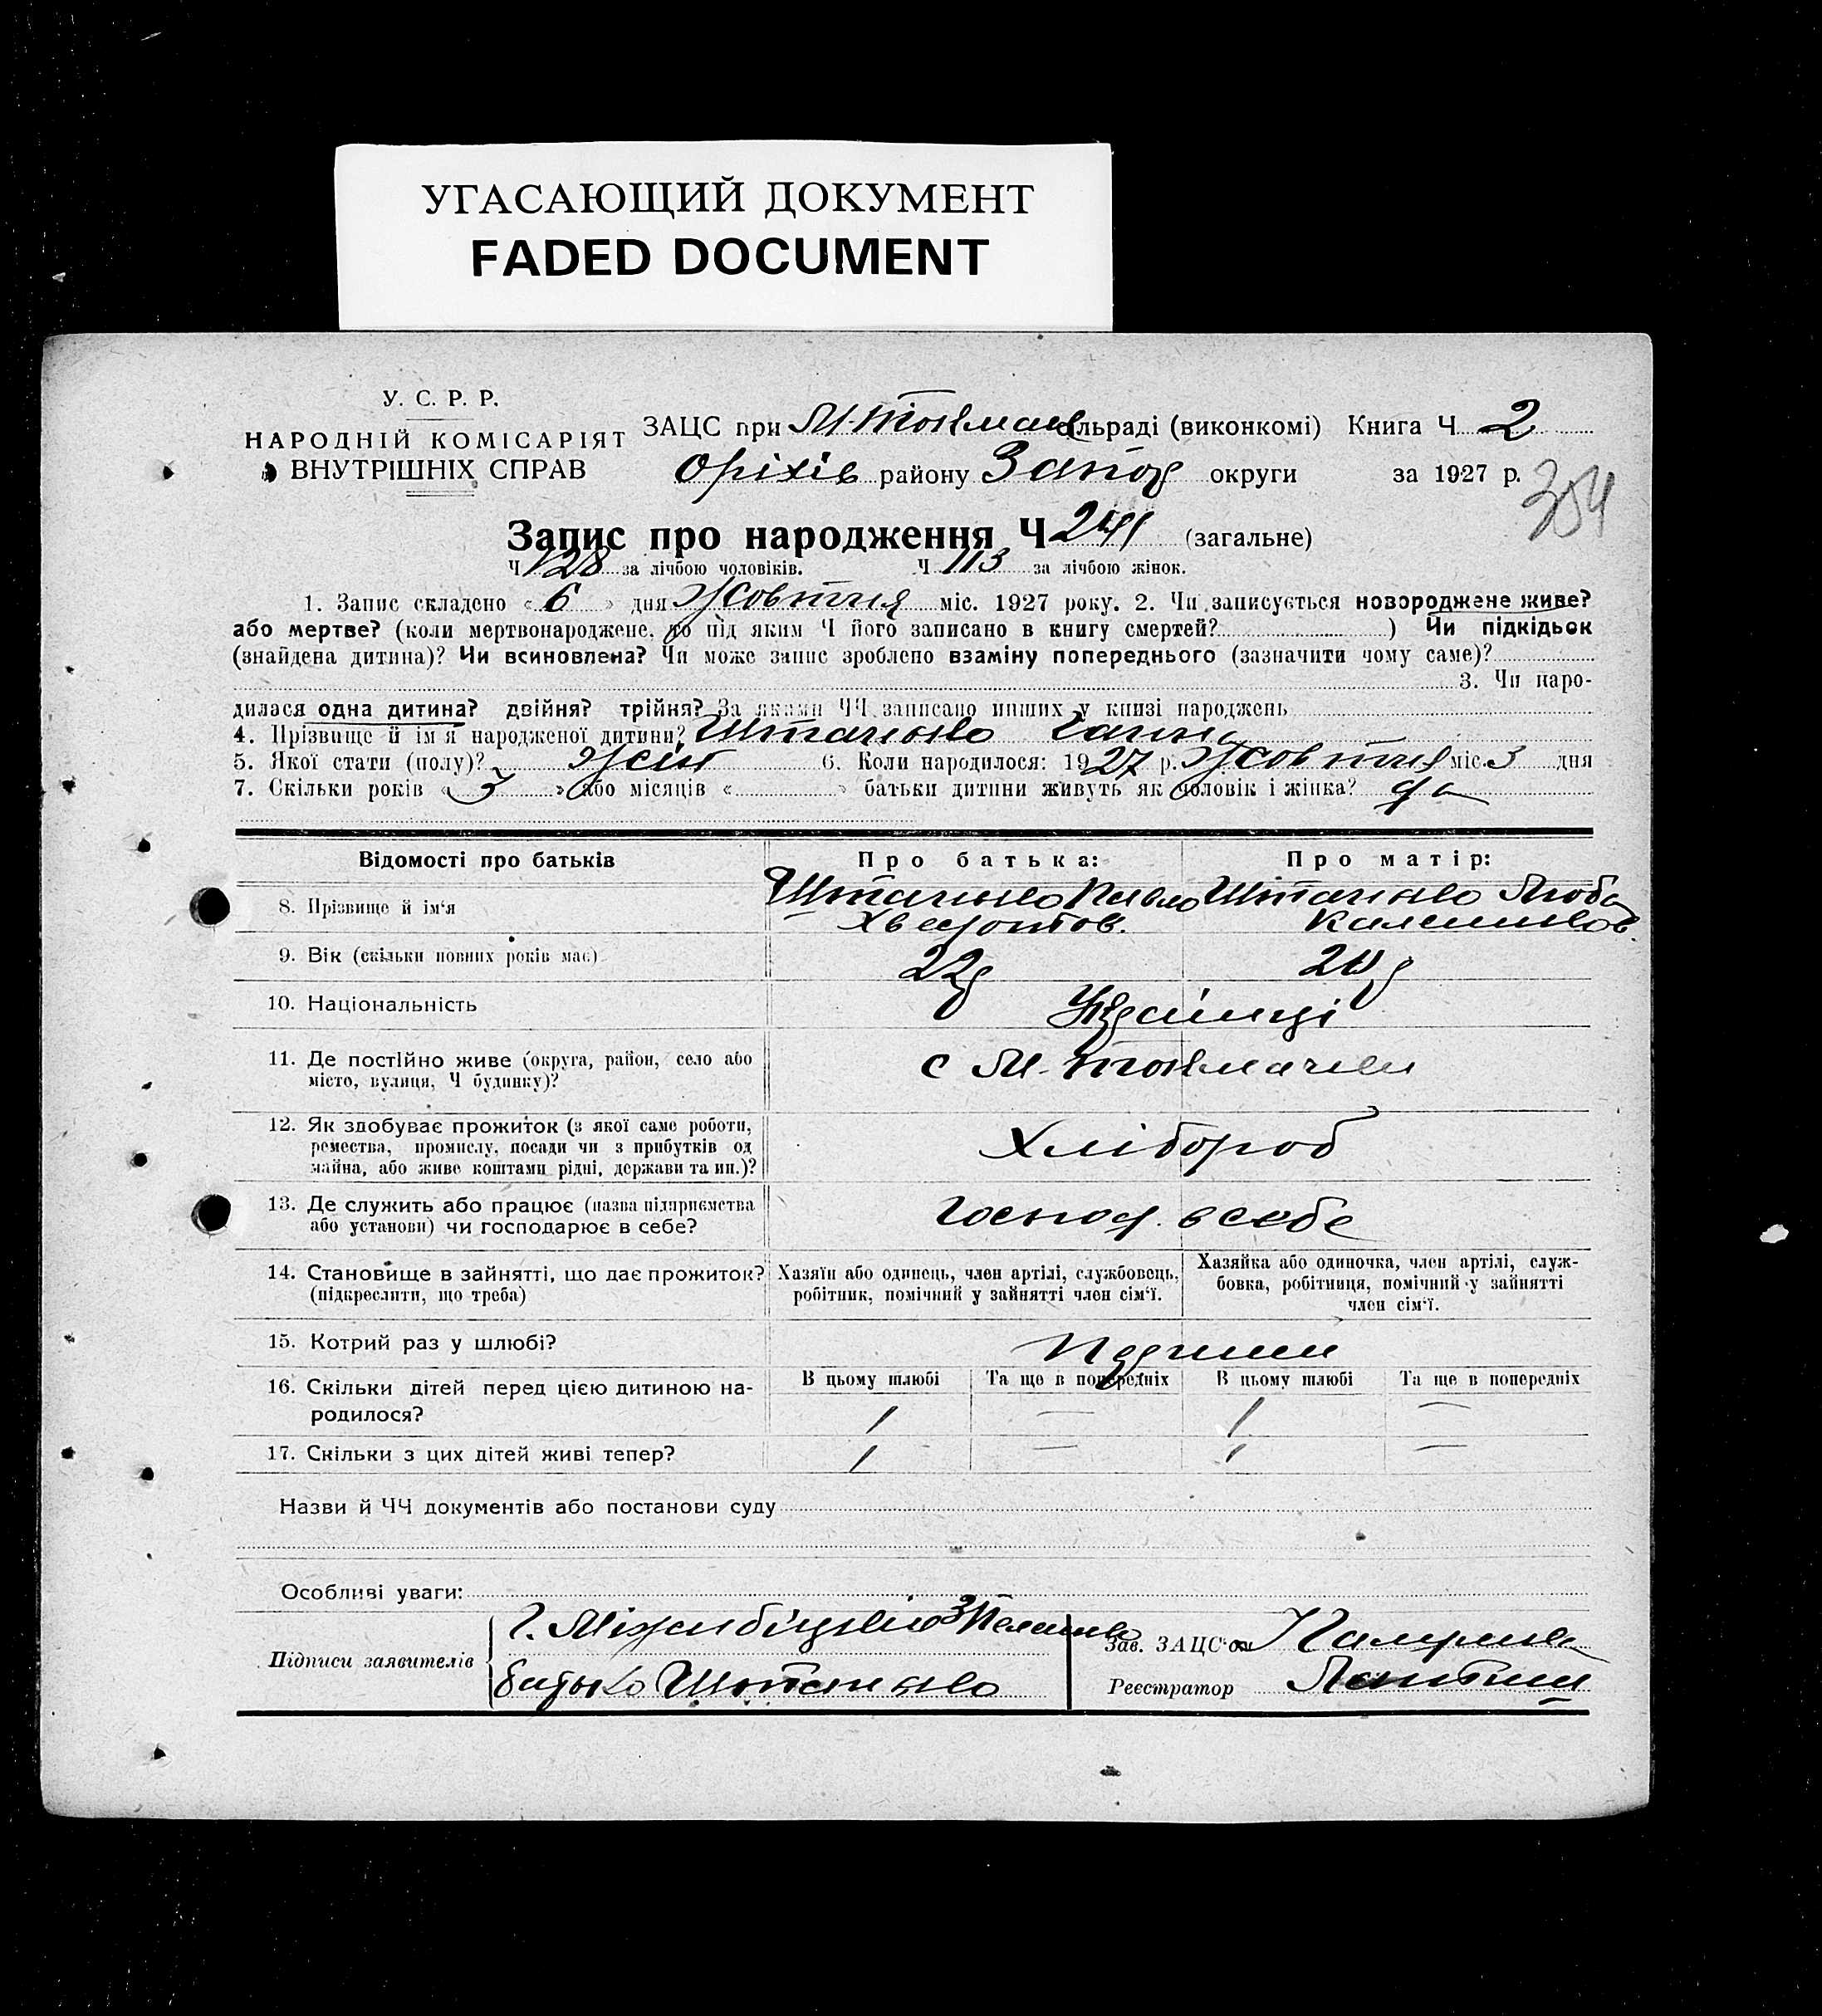 УГАСАЮЩИЙ ДОКУМЕНТ
FADED DOCUMENT
У. С. Р. Р.
НАРОДНІЙ КОМІСАРІЯТ
ВНУТРІШНІХ СПРАВ
ЗАЦС при М-Токмач сільраді (виконкомі) Книга Ч 2
Оріхів району Запор округи за 1927 р.
354
Запис про народження Ч 241 (загальне)
Ч 128 за лічбою чоловіків. Ч 113 за лічбою жінок.
1. Запис складено « 6 » дня Жовтня міс. 1927 року. 2. Чи записується новороджене живе?
або мертве? (коли мертвонароджене, то під яким Ч його записано в книгу смертей? ) Чи підкідьок
(знайдена дитина)? Чи всиновлена? Чи може запис зроблено взаміну попереднього (зазначити чому саме)?
3. Чи наро-
дилася одна дитина? двійня? трійня? За якими ЧЧ записано инших у книзі народжень
4. Прізвище й ім'я народженої дитини? Штанько Ганна
5. Якої стати (полу)? Жін 6. Коли народилося: 1927 р. Жовтня міс. 3 дня
7. Скільки років « 3 » або місяців « » батьки дитини живуть як чоловік і жінка? да
Відомості про батьків Про батька: Про матір:
8. Прізвище й ім'я Штанько Павло Штанько Люба
9. Вік (скільки повних років має) 22р
10. Національність Українці
11. Де постійно живе (округа, район, село або
місто, вулиця, Ч будинку)?
с М-Токмачки
12. Як здобуває прожиток (з якої саме роботи,
ремества, промислу, посади чи з прибутків од
майна, або живе коштами рідні, держави та ин.)?
Хлібороб
13. Де служить або працює (назва підприємства
або установи) чи господарює в себе?
Господ. в себе
14. Становище в зайнятті, що дає прожиток?
(підкреслити, що треба)
Хазяїн або одинець, член артілі, службовець,
робітник, помічний у зайнятті член сім'ї.
Хазяйка або одиночка, член артілі, служ-
бовка, робітниця, помічний у зайнятті
член сім'ї.
15. Котрий раз у шлюбі?
16. Скільки дітей перед цією дитиною на-
родилося?
В цьому шлюбі Та ще в попередніх В цьому шлюбі Та ще в попередніх
1 — 1 —
17. Скільки з цих дітей живі тепер? 1 — 1 —
Назви й ЧЧ документів або постанови суду
Особливі уваги:
Підписи заявителів
батько Штанько
Зав. ЗАЦС'ом
Реєстратор